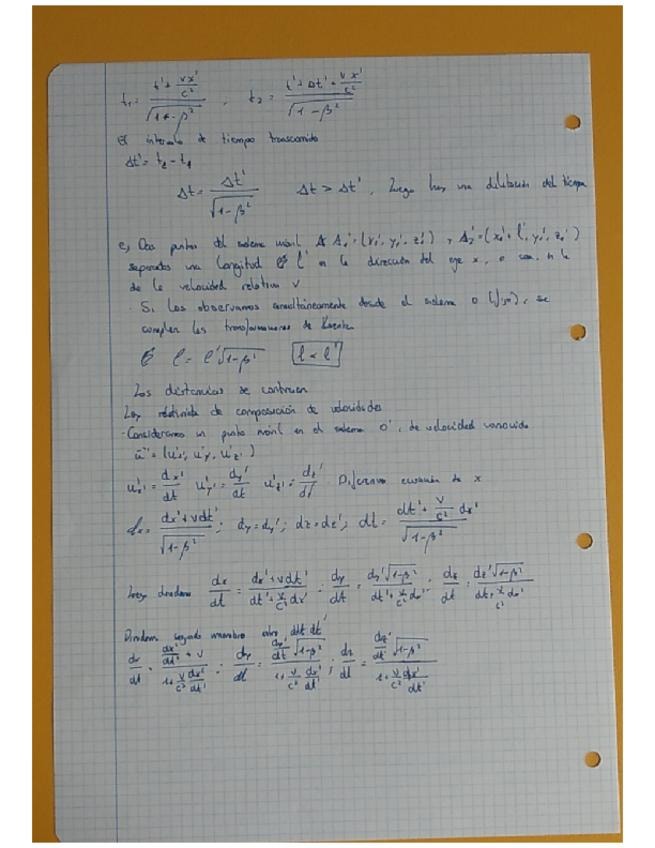 t₁ = (t' + vx'/c²)/√(1 - β²) , t₂ = (t' + Δt' + vx'/c²)/√(1 - β²)
El intervalo de tiempo transcurrido
Δt' = t₂ - t₁
Δt = Δt'/√(1-β²) Δt > Δt', luego hay una dilatación del tiempo
e) Dos puntos del sistema móvil A₁'=(x₁', y₁', z₁') y A₂'=(x₁'+ l', y₁', z₁')
separados una longitud l' en la dirección del eje x, o sea, en la
de la velocidad relativa v
· Si los observamos simultáneamente desde el sistema O (fijo), se
cumplen las transformaciones de
l = l'√(1-β²) l < l'
Las distancias se contraen
Ley relativista de composición de velocidades
· Consideramos un punto móvil en el sistema O', de velocidad conocida
ū' = (u'x', u'y', u'z')
u'x' = dx'/dt u'y' = dy'/dt u'z' = dz'/dt' ecuación de x
dx = (dx' + vdt')/√(1-β²) ; dy = dy' ; dz = dz' ; dt = (dt' + v/c² dx')/√(1-β²)
dividiendo dx/dt = (dx' + vdt')/(dt' + v/c² dx') ; dy/dt = dy'√(1-β²)/(dt' + v/c² dx') ; dz/dt = dz'√(1-β²)/(dt + v/c² dx')
Dividiendo segundo miembro entre dt'
dx/dt = (dx'/dt' + v)/(1 + v/c² dx'/dt') ; dy/dt = (dy'/dt √(1-β²))/(1 + v/c² dx'/dt') ; dz/dt = (dz'/dt' √(1-β²))/(1 + v/c² dx'/dt')